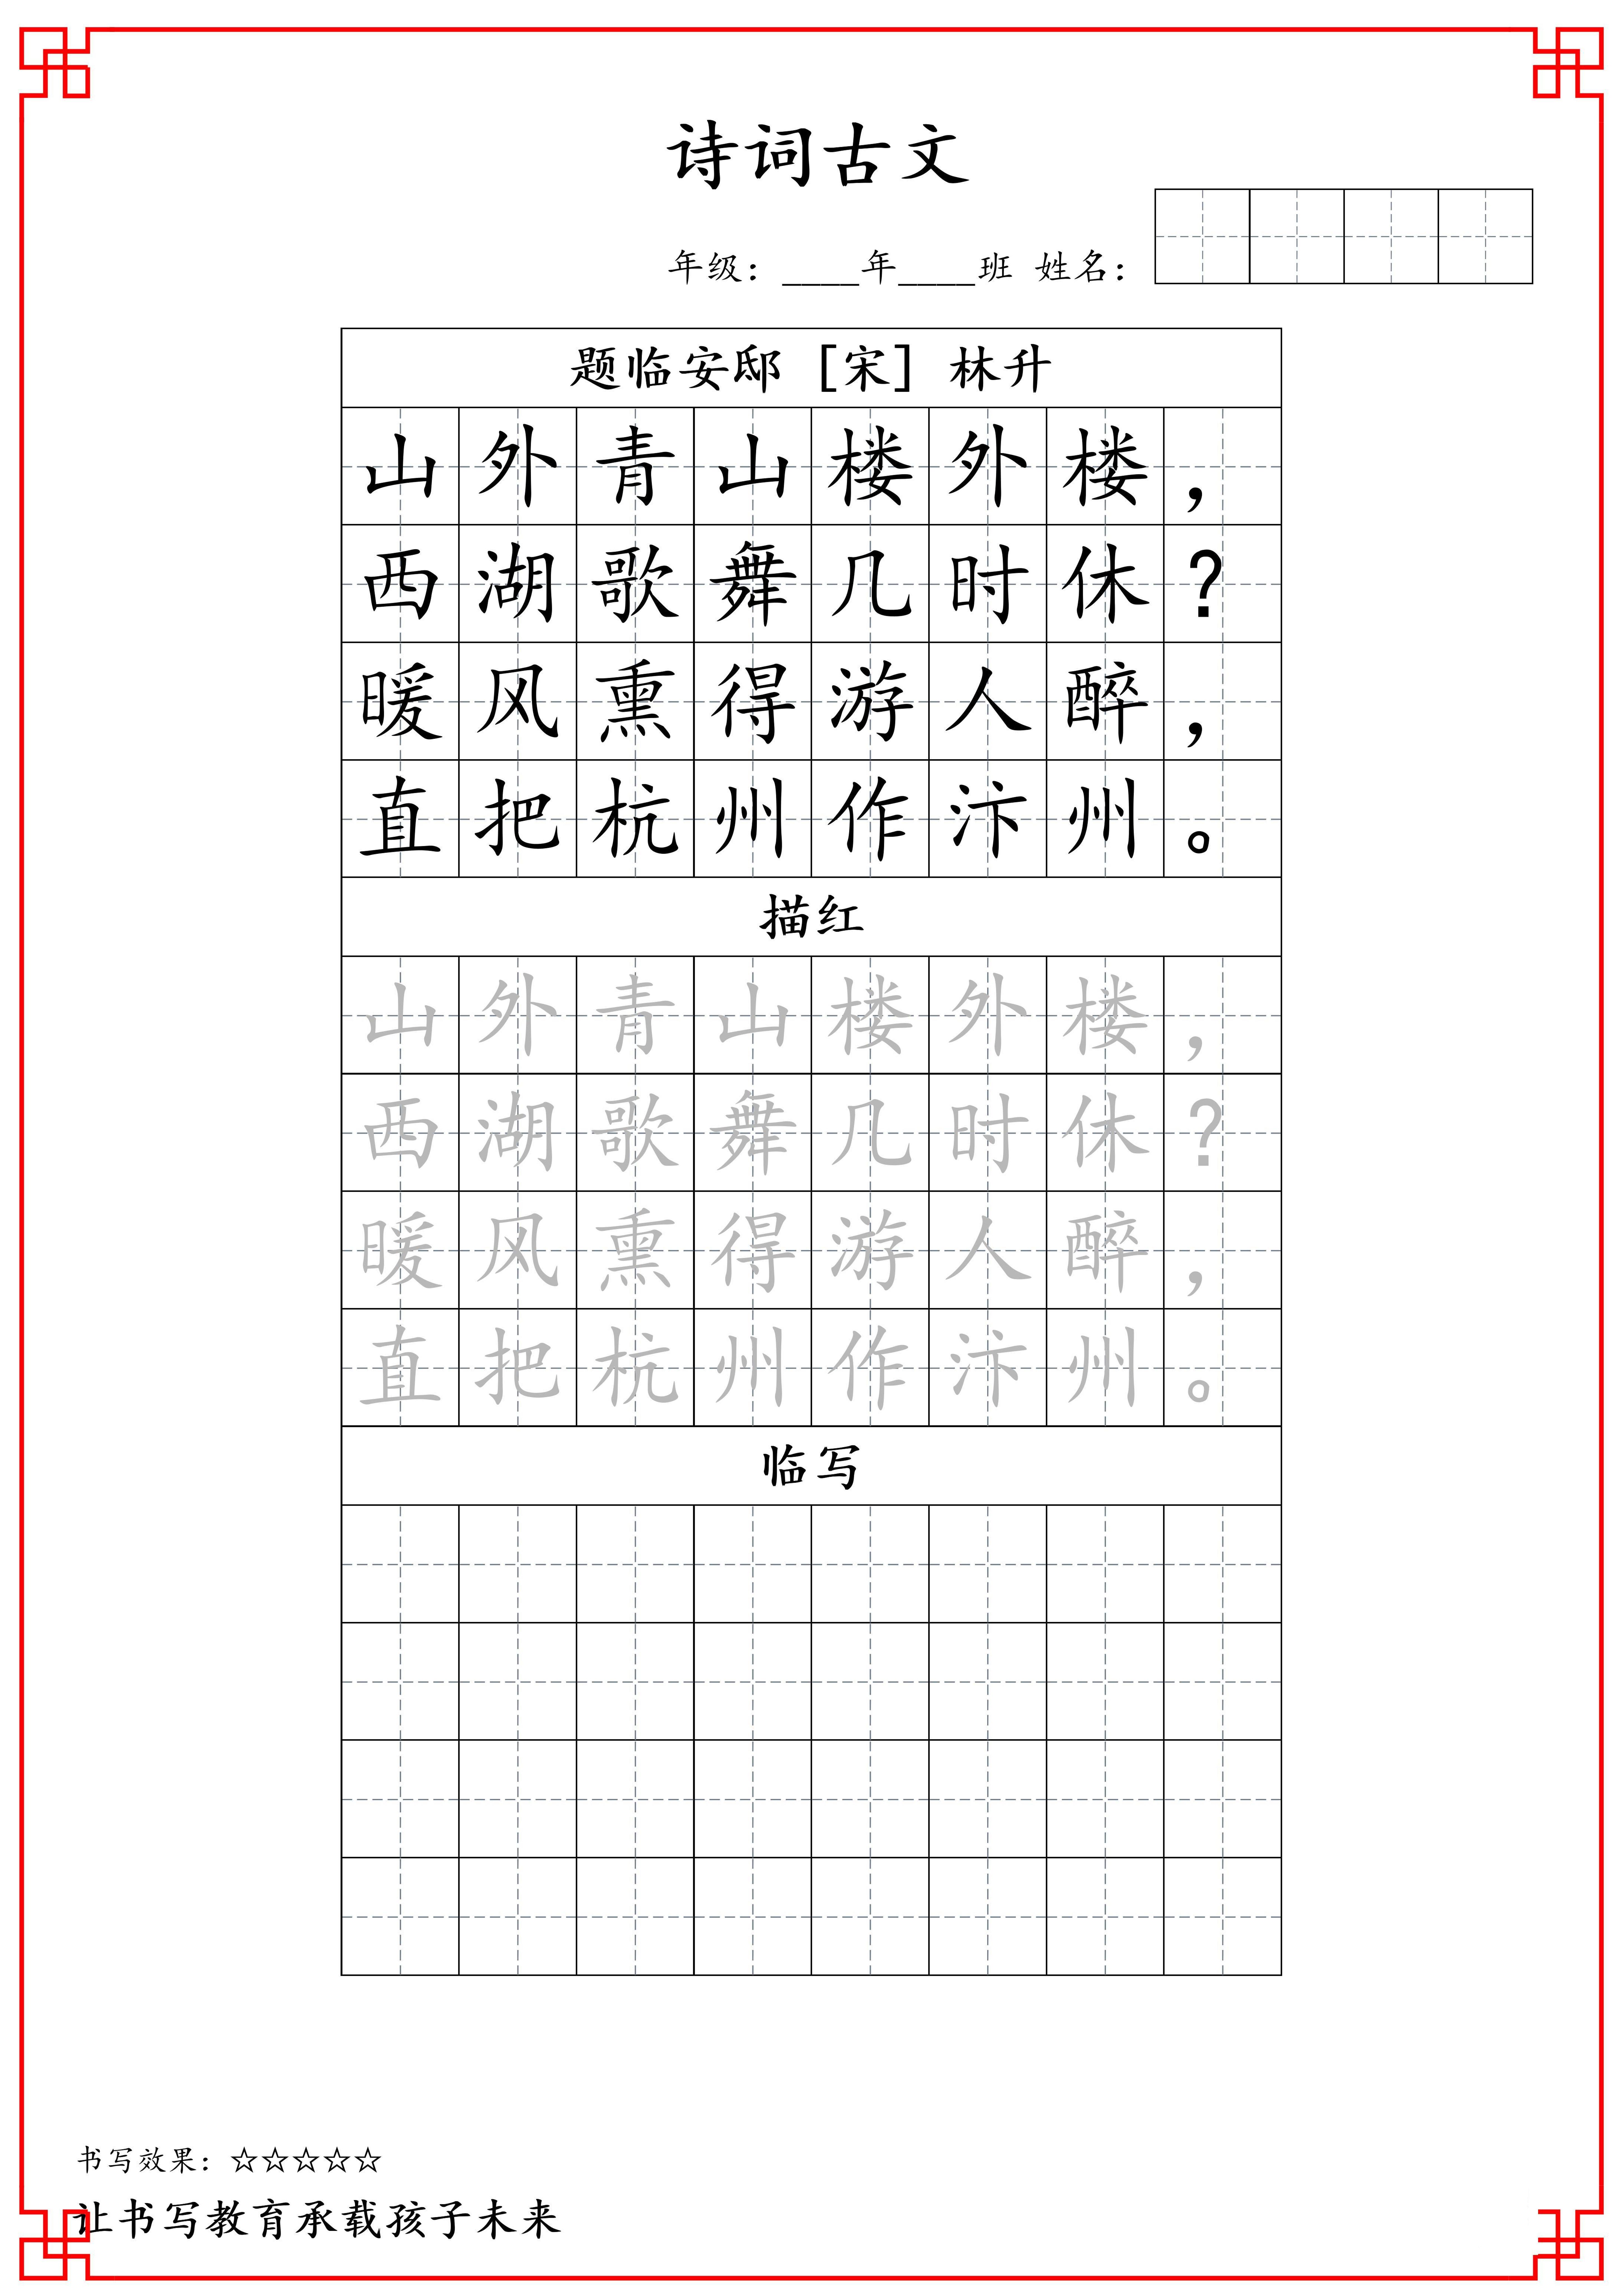 诗词古文
年级：____年____班 姓名：
题临安邸 [宋] 林升
山外青山楼外楼，
西湖歌舞几时休？
暖风熏得游人醉，
直把杭州作汴州。
描红
山外青山楼外楼，
西湖歌舞几时休？
暖风熏得游人醉，
直把杭州作汴州。
临写
书写效果：☆☆☆☆☆
让书写教育承载孩子未来